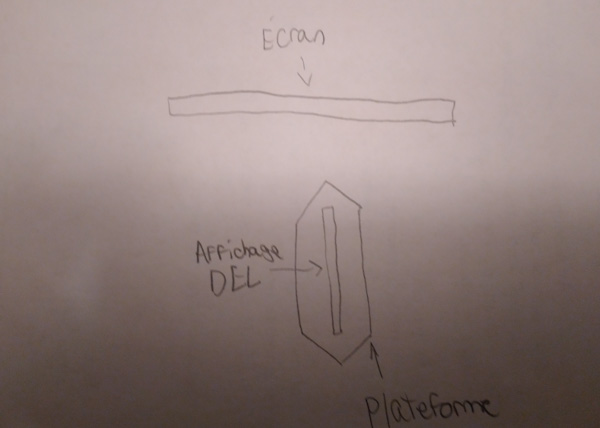 Écran
Affichage
DEL
Plateforme